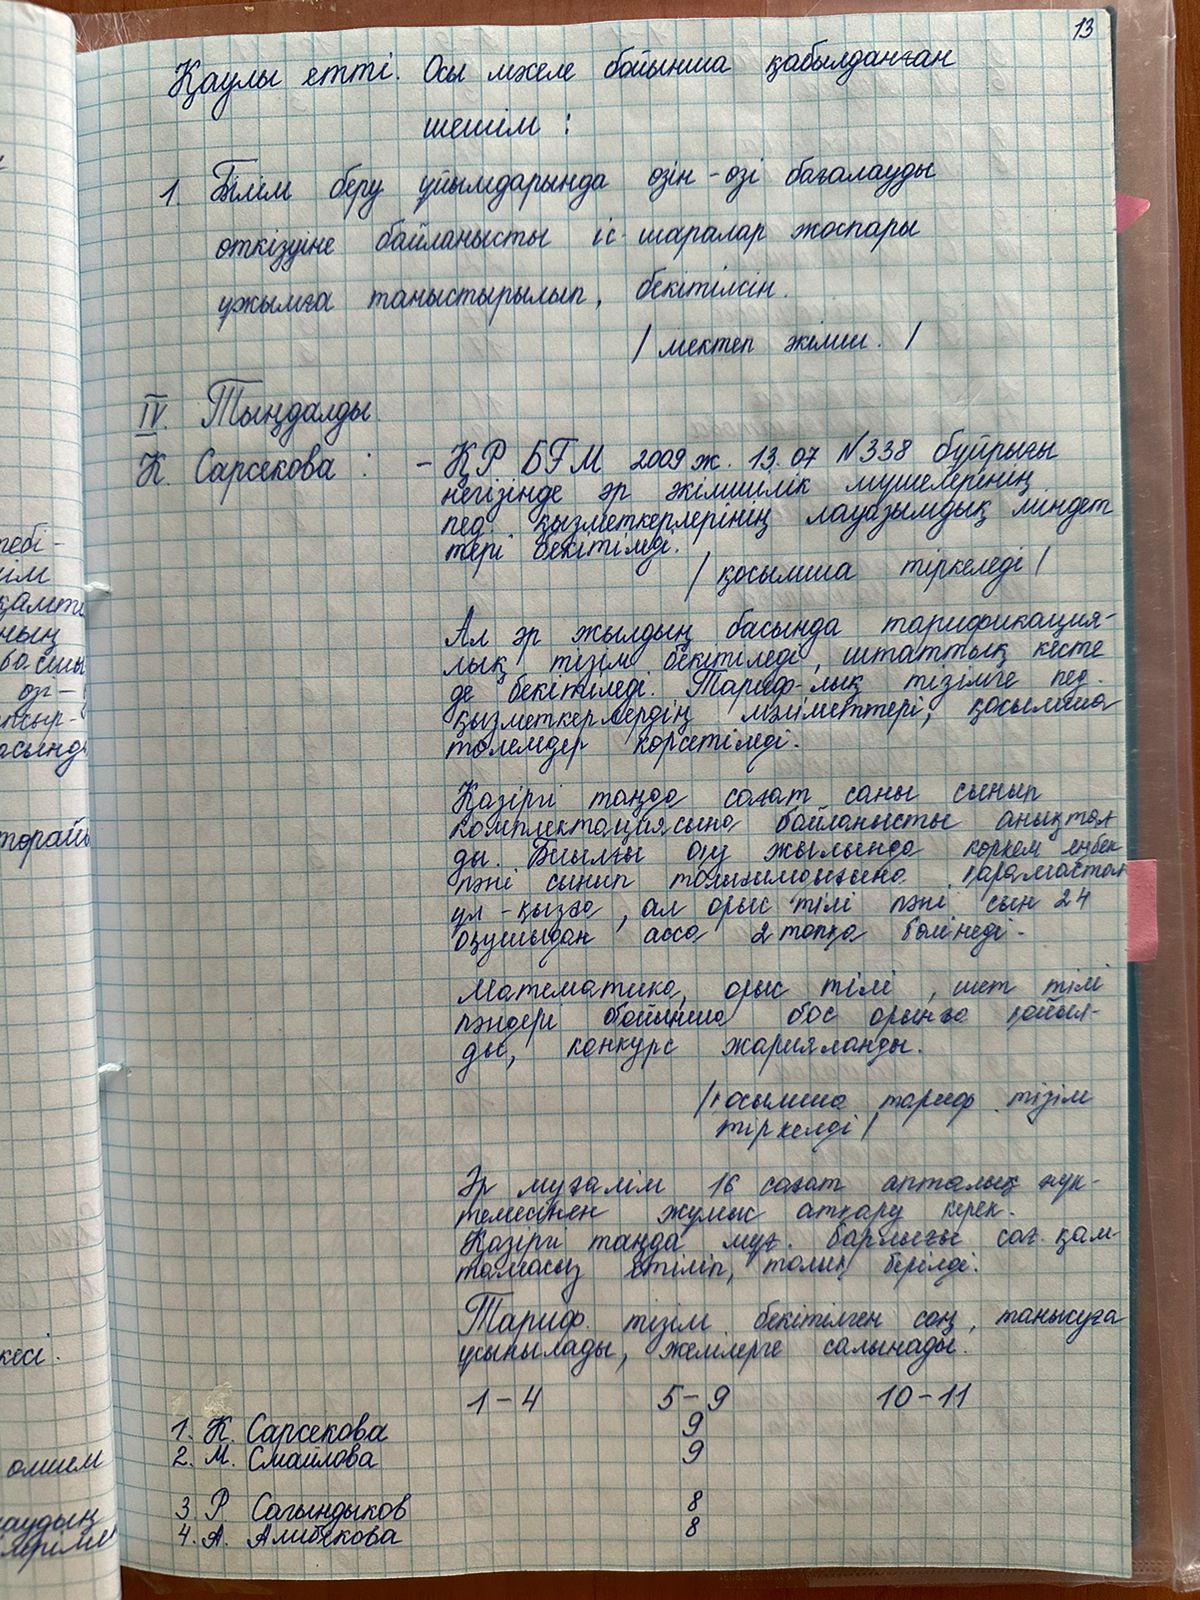 13
Қаулы етті. Осы мәселе бойынша қабылданған
шешім :
1. Білім беру ұйымдарында өзін-өзі бағалауды
өткізуіне байланысты іс-шаралар жоспары
ұжымға таныстырылып, бекітілсін.
/ мектеп әкімш. /
IV. Тыңдалды
К. Сарсекова : - ҚР БҒМ 2009 ж. 13.07 №338 бұйрығы
негізінде әр әкімшілік мүшелерінің
пед қызметкерлерінің лауазымдық міндет
тері бекітіледі.
/ қосымша тіркеледі /
Ал әр жылдың басында тарификация-
лық тізім бекітіледі, штаттық кесте
де бекітіледі. Тариф-лық тізімге пед.
қызметкерлердің мәліметтері, қосымша
төлемдер көрсетіледі.
Қазіргі таңда сағат саны сынып
комплектациясына байланысты анықтал
ды. Биылғы оқу жылында көркем еңбек
пәні сынып толығымдығына қарамастан
ұл-қызға, ал орыс тілі пәні сын 24
оқушыдан аса 2 топқа бөлінеді.
Математика, орыс тілі, шет тілі
пәндері бойынша бос орынға қойыл-
ды, конкурс жарияланды.
/қосымша тариф. тізім
тіркелді /
Әр мұғалім 16 сағат апталық жүк-
темесінен жұмыс атқару керек.
Қазіргі таңда мұғ. барлығы сағ. қам-
тамасыз етіліп, толық берілді.
Тариф. тізім бекітілген соң, танысуға
ұсынылады, желілерге салынады.
1-4 5-9 10-11
1. К. Сарсекова 9
2. М. Смайлова 9
3. Р. Сағындыков 8
4. А. Алибекова 8